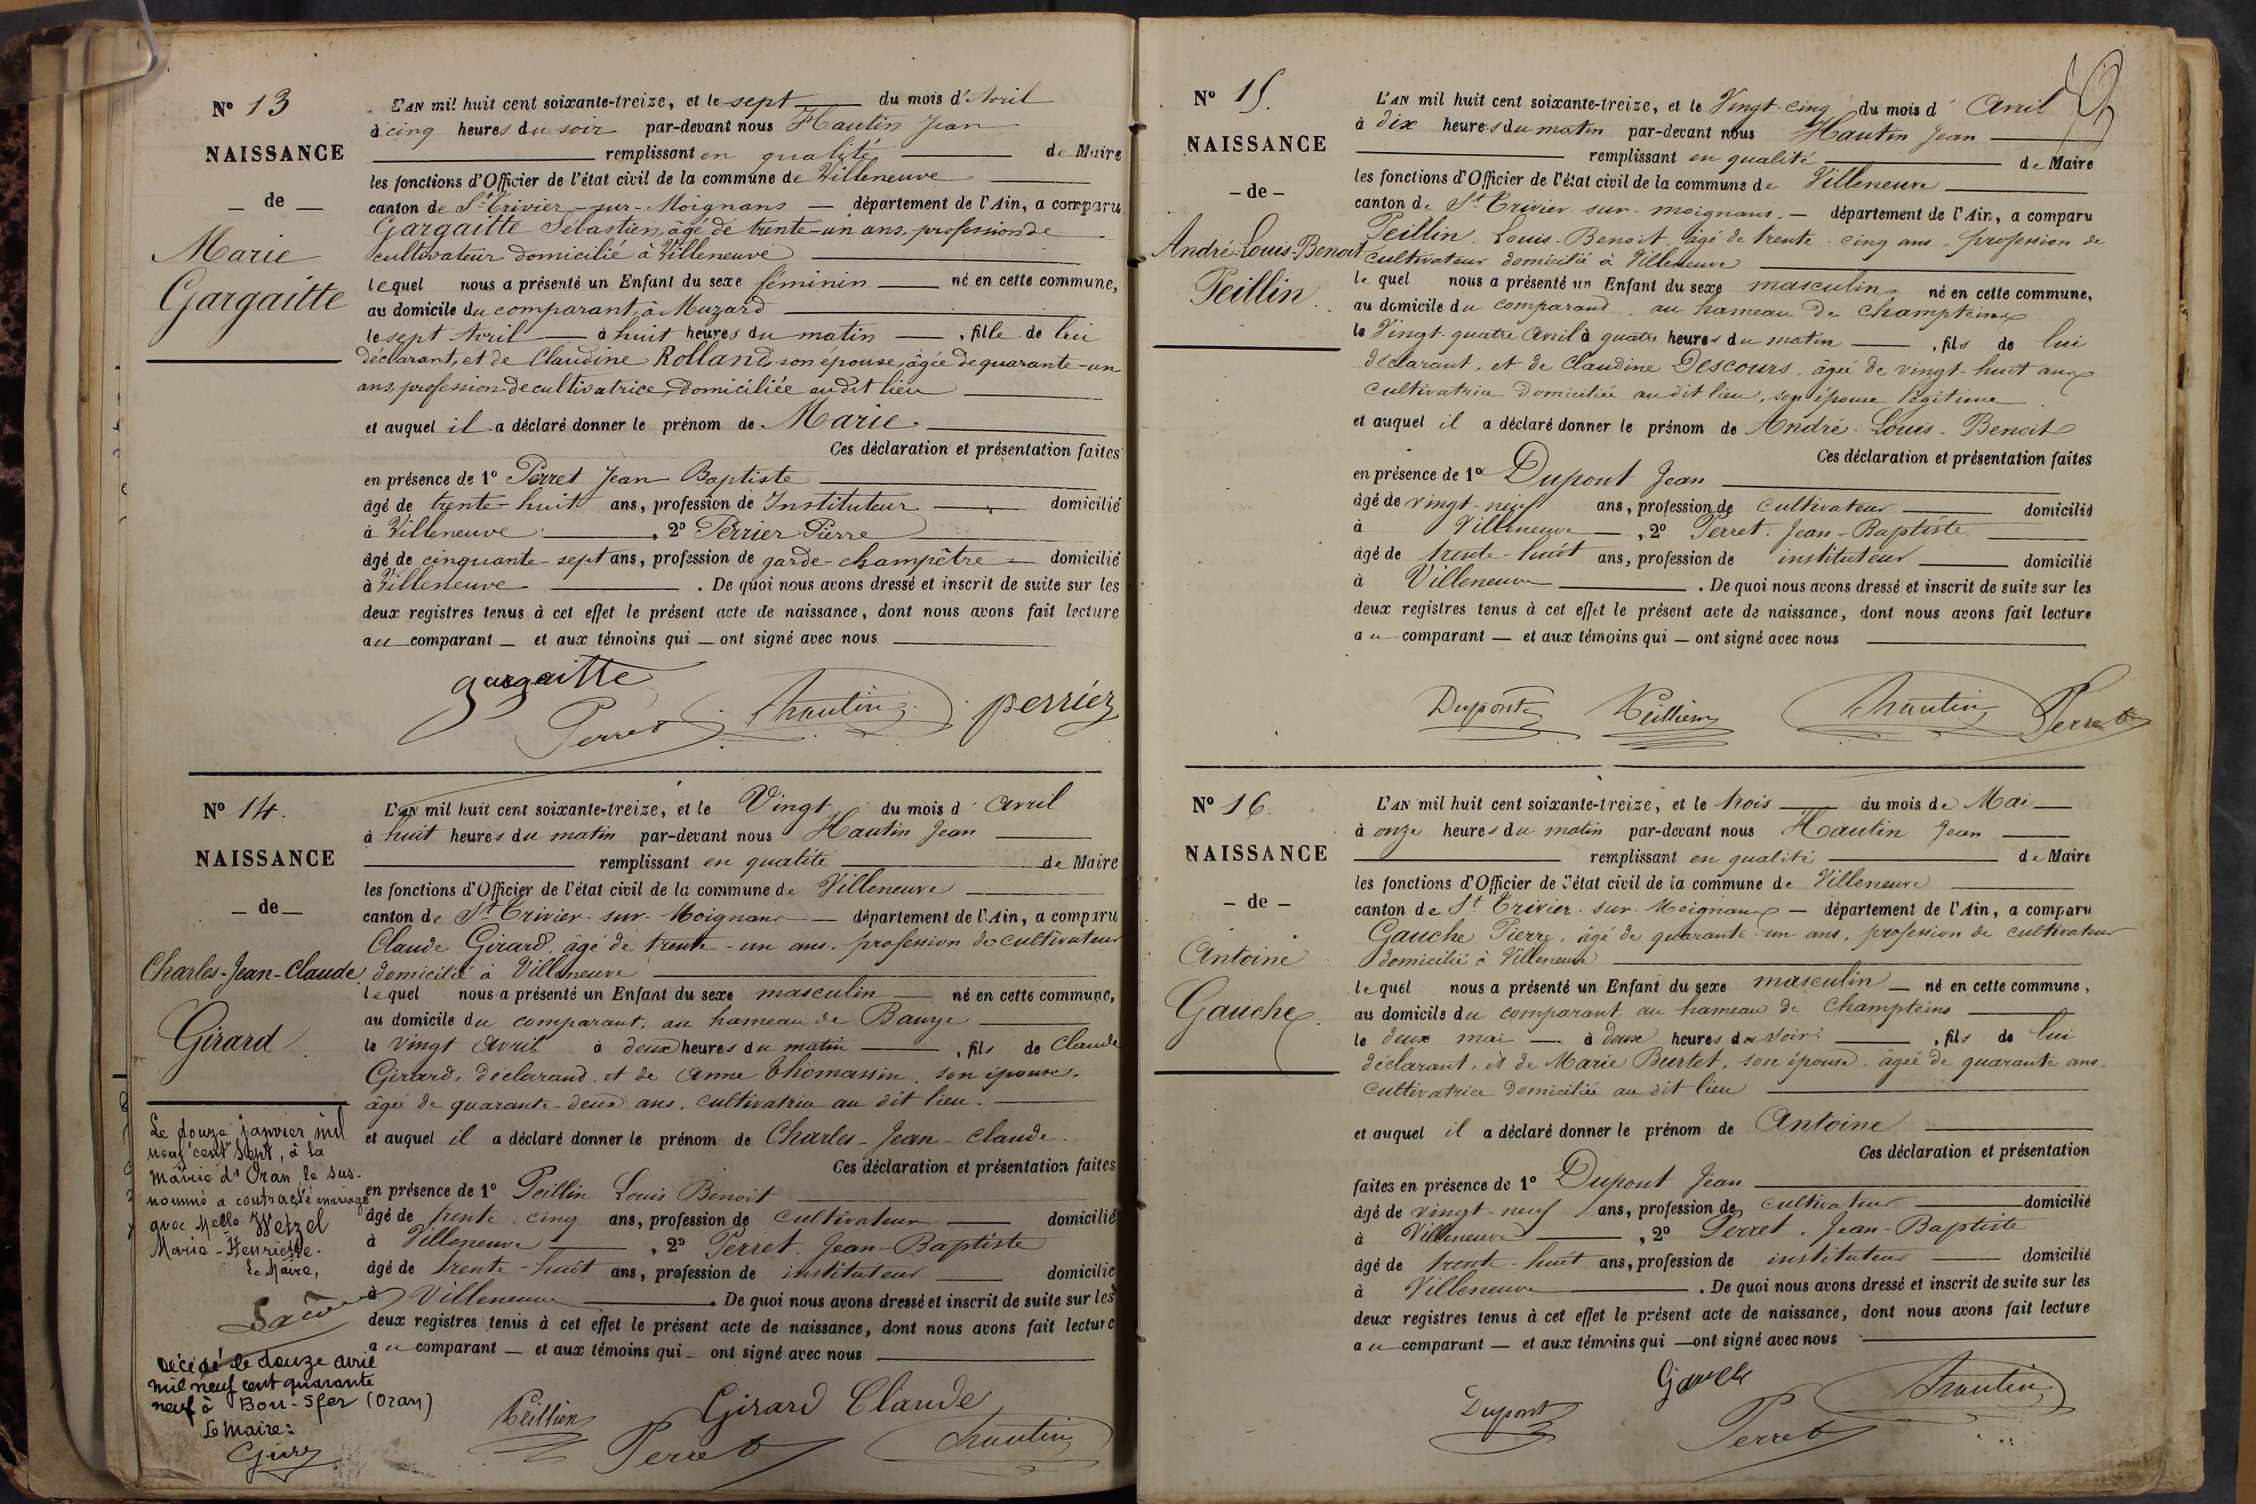 N° 13
NAISSANCE
— de —
Marie
Gargaitte
L'AN mil huit cent soixante-treize, et le sept du mois d'Avril
à cinq heures du soir par-devant nous Hautin Jean
remplissant en qualité de Maire
les fonctions d'Officier de l'état civil de la commune de Villeneuve
canton de St Trivier-sur-Moignans — département de l'Ain, a comparu
Gargaitte Sébastien, âgé de trente-un ans, profession de
cultivateur domicilié à Villeneuve
lequel nous a présenté un Enfant du sexe féminin né en cette commune,
au domicile du comparant, à Muzard
le sept Avril à huit heures du matin , fille de lui
déclarant, et de Claudine ROLLAND, son épouse, âgée de quarante-un
ans, profession de cultivatrice, domiciliée au dit lieu
et auquel il a déclaré donner le prénom de Marie.
Ces déclaration et présentation faites
en présence de 1° Perret Jean Baptiste
âgé de trente-huit ans, profession de Instituteur domicilié
à Villeneuve , 2° Perrier Pierre
âgé de cinquante-sept ans, profession de garde-champêtre domicilié
à Villeneuve . De quoi nous avons dressé et inscrit de suite sur les
deux registres tenus à cet effet le présent acte de naissance, dont nous avons fait lecture
au comparant — et aux témoins qui — ont signé avec nous
gargaitte
Perret hautin perrier
N° 14.
NAISSANCE
— de —
Charles-Jean-Claude
Girard
L'AN mil huit cent soixante-treize, et le Vingt du mois d' avril
à huit heures du matin par-devant nous Hautin Jean
remplissant en qualité de Maire
les fonctions d'Officier de l'état civil de la commune de Villeneuve
canton de St Trivier-sur-Moignans — département de l'Ain, a comparu
Claude Girard, âgé de trente-un ans, profession de cultivateur
domicilié à Villeneuve
lequel nous a présenté un Enfant du sexe masculin né en cette commune,
au domicile du comparant, au hameau de Bauye
le vingt avril à deux heures du matin , fils de Claude
Girard, déclarand et de Anne Thomassin, son épouse,
âgée de quarante-deux ans, cultivatrice au dit lieu.
et auquel il a déclaré donner le prénom de Charles-Jean-Claude.
Ces déclaration et présentation faites
en présence de 1° Peillin Louis Benoit
âgé de trente-cinq ans, profession de cultivateur domicilié
à Villeneuve , 2° Perret Jean-Baptiste
âgé de trente-huit ans, profession de instituteur domicilié
à Villeneuve . De quoi nous avons dressé et inscrit de suite sur les
deux registres tenus à cet effet le présent acte de naissance, dont nous avons fait lecture
au comparant — et aux témoins qui — ont signé avec nous
Le douze janvier mil
neuf cent sept, à la
mairie d'Oran le sus-
nommé a contracté mariage
avec Melle Wetzel
Marie-Henriette.
Le Maire,
Décédé le douze avril
mil neuf cent quarante
neuf à Bou-Sfer (Oran)
Le Maire:
Peillin Girard Claude
Perret hautin
N° 15.
NAISSANCE
— de —
André-Louis-Benoit
Peillin
L'AN mil huit cent soixante-treize, et le Vingt-cinq du mois d' avril
à dix heures du matin par-devant nous Hautin Jean
remplissant en qualité de Maire
les fonctions d'Officier de l'état civil de la commune de Villeneuve
canton de St Trivier-sur-moignans. — département de l'Ain, a comparu
Peillin Louis-Benoit, âgé de trente-cinq ans, profession de
cultivateur domicilié à Villeneuve
lequel nous a présenté un Enfant du sexe masculin né en cette commune,
au domicile du comparand, au hameau de Champteins
le Vingt-quatre avril à quatre heures du matin , fils de lui
déclarant, et de Claudine DESCOURS, âgée de vingt-huit ans
cultivatrice domiciliée au dit lieu, son épouse légitime
et auquel il a déclaré donner le prénom de André-Louis-Benoit
Ces déclaration et présentation faites
en présence de 1° Dupont Jean
âgé de vingt-neuf ans, profession de cultivateur domicilié
à Villeneuve , 2° Perret Jean-Baptiste
âgé de trente-huit ans, profession de instituteur domicilié
à Villeneuve . De quoi nous avons dressé et inscrit de suite sur les
deux registres tenus à cet effet le présent acte de naissance, dont nous avons fait lecture
au comparant — et aux témoins qui — ont signé avec nous
Dupont Peillin hautin Perret
N° 16.
NAISSANCE
— de —
Antoine
Gauche
L'AN mil huit cent soixante-treize, et le trois du mois de Mai
à onze heures du matin par-devant nous Hautin Jean
remplissant en qualité de Maire
les fonctions d'Officier de l'état civil de la commune de Villeneuve
canton de St Trivier-sur-Moignans — département de l'Ain, a comparu
Gauche Pierre, âgé de quarante-un ans, profession de cultivateur
domicilié à Villeneuve
lequel nous a présenté un Enfant du sexe masculin né en cette commune,
au domicile du comparant au hameau de Champteins
le deux mai à deux heures du soir , fils de lui
déclarant, et de Marie Burtet, son épouse, âgée de quarante ans
cultivatrice domiciliée au dit lieu
et auquel il a déclaré donner le prénom de Antoine
Ces déclaration et présentation
faites en présence de 1° Dupont Jean
âgé de vingt-neuf ans, profession de cultivateur domicilié
à Villeneuve , 2° Perret, Jean-Baptiste
âgé de trente-huit ans, profession de instituteur domicilié
à Villeneuve . De quoi nous avons dressé et inscrit de suite sur les
deux registres tenus à cet effet le présent acte de naissance, dont nous avons fait lecture
au comparant — et aux témoins qui — ont signé avec nous
Gauche hautin
Dupont Perret